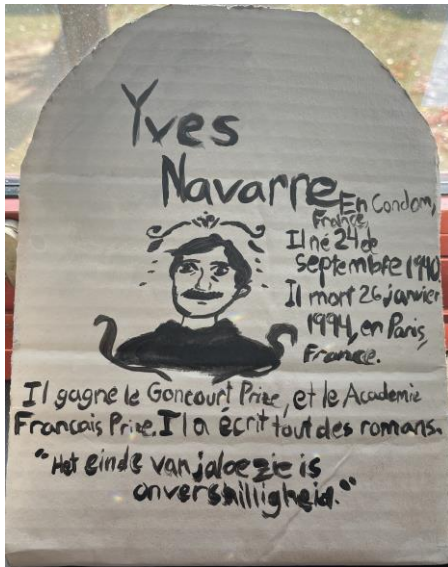 Yves
Navarre
En Condom,
France,
Il né 24 de
septembre 1940.
Il mort 26 janvier
1994, en Paris,
France.
Il gagne le Goncourt Prize, et le Academie
Francais Prize. Il a écrit tout des romans.
"Het einde van jaloezie is
onvershilligheid."